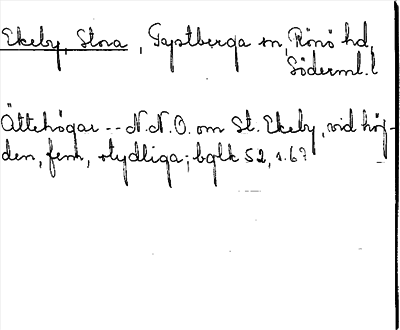 Ekeby, Stora, Taptberga sn, Rönö hd,
Söderml. l
Ättehögar -- N.N.O. om St. Ekeby, vid höj-
den, fem, otydliga; bglk 52, s. 67